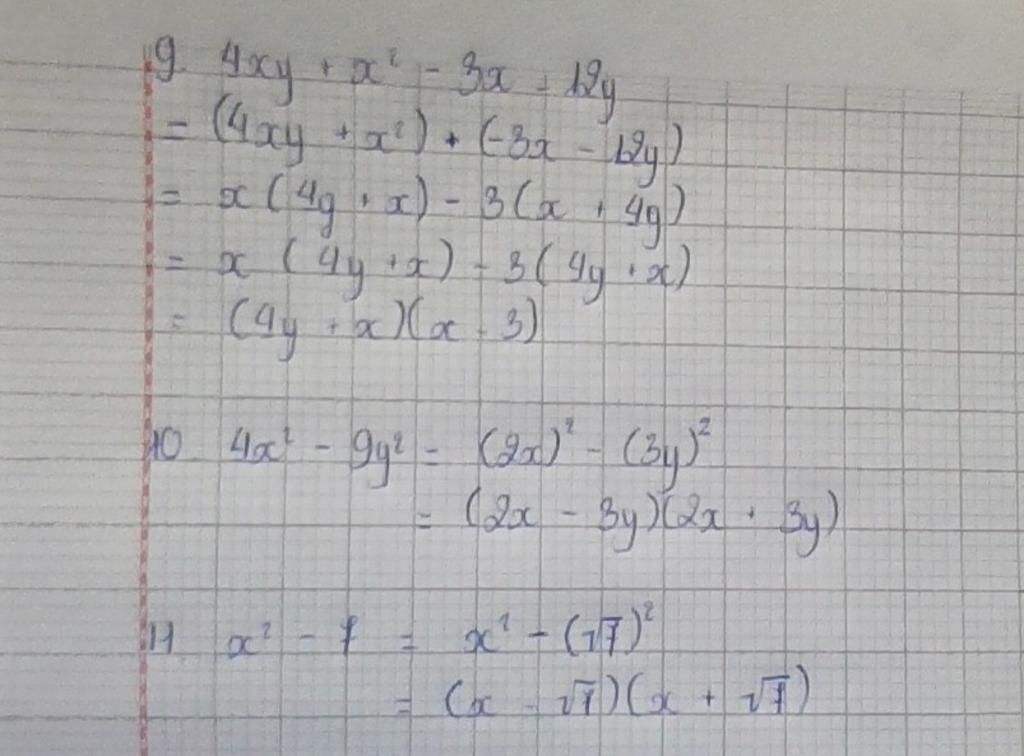 9. 4xy + x² - 3x - 12y
= (4xy + x²) + (-3x - 12y)
= x(4y + x) - 3(x + 4y)
= x (4y + x) - 3(4y + x)
= (4y + x)(x - 3)
10. 4x² - 9y² = (2x)² - (3y)²
= (2x - 3y)(2x + 3y)
11. x² - 7 = x² - (√7)²
= (x - √7)(x + √7)